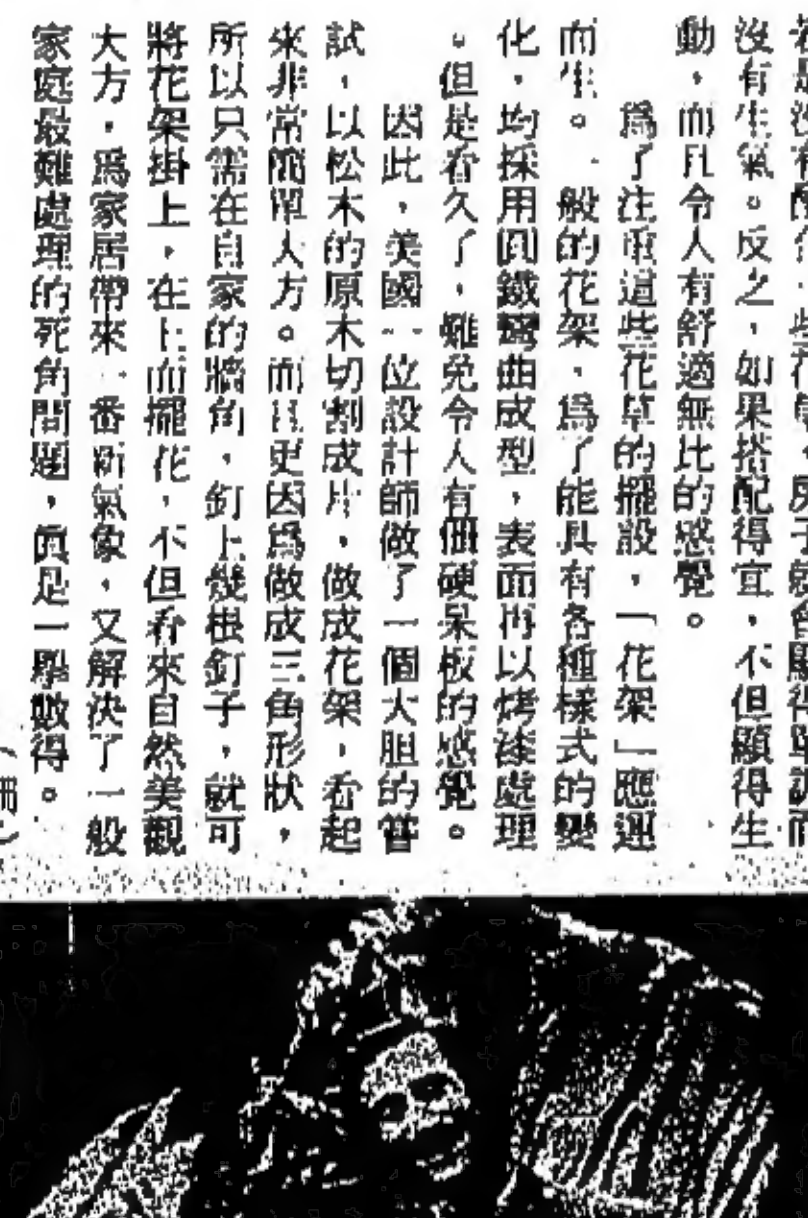 若是沒有配合，些花草，房子就會顯得單調而
沒有生氣。反之，如果搭配得宜，不但顯得生
動，而且令人有舒適無比的感覺。
爲了注重這些花草的擺設，「花架」應運
而生。一般的花架，爲了能具有各種樣式的變
化，均採用圓鐵彎曲成型，表面再以烤漆處理
。但是看久了，難免令人有個硬呆板的感覺。
因此，美國一位設計師做了一個大胆的嘗
試，以松木的原木切割成片，做成花架，看起
來非常簡單大方。而且更因爲做成三角形狀，
所以只需在自家的牆角，釘上幾根釘子，就可
將花架掛上，在上面擺花，不但看來自然美觀
大方，爲家居帶來一番新氣象，又解決了一般
家庭最難處理的死角問題，眞是一舉數得。